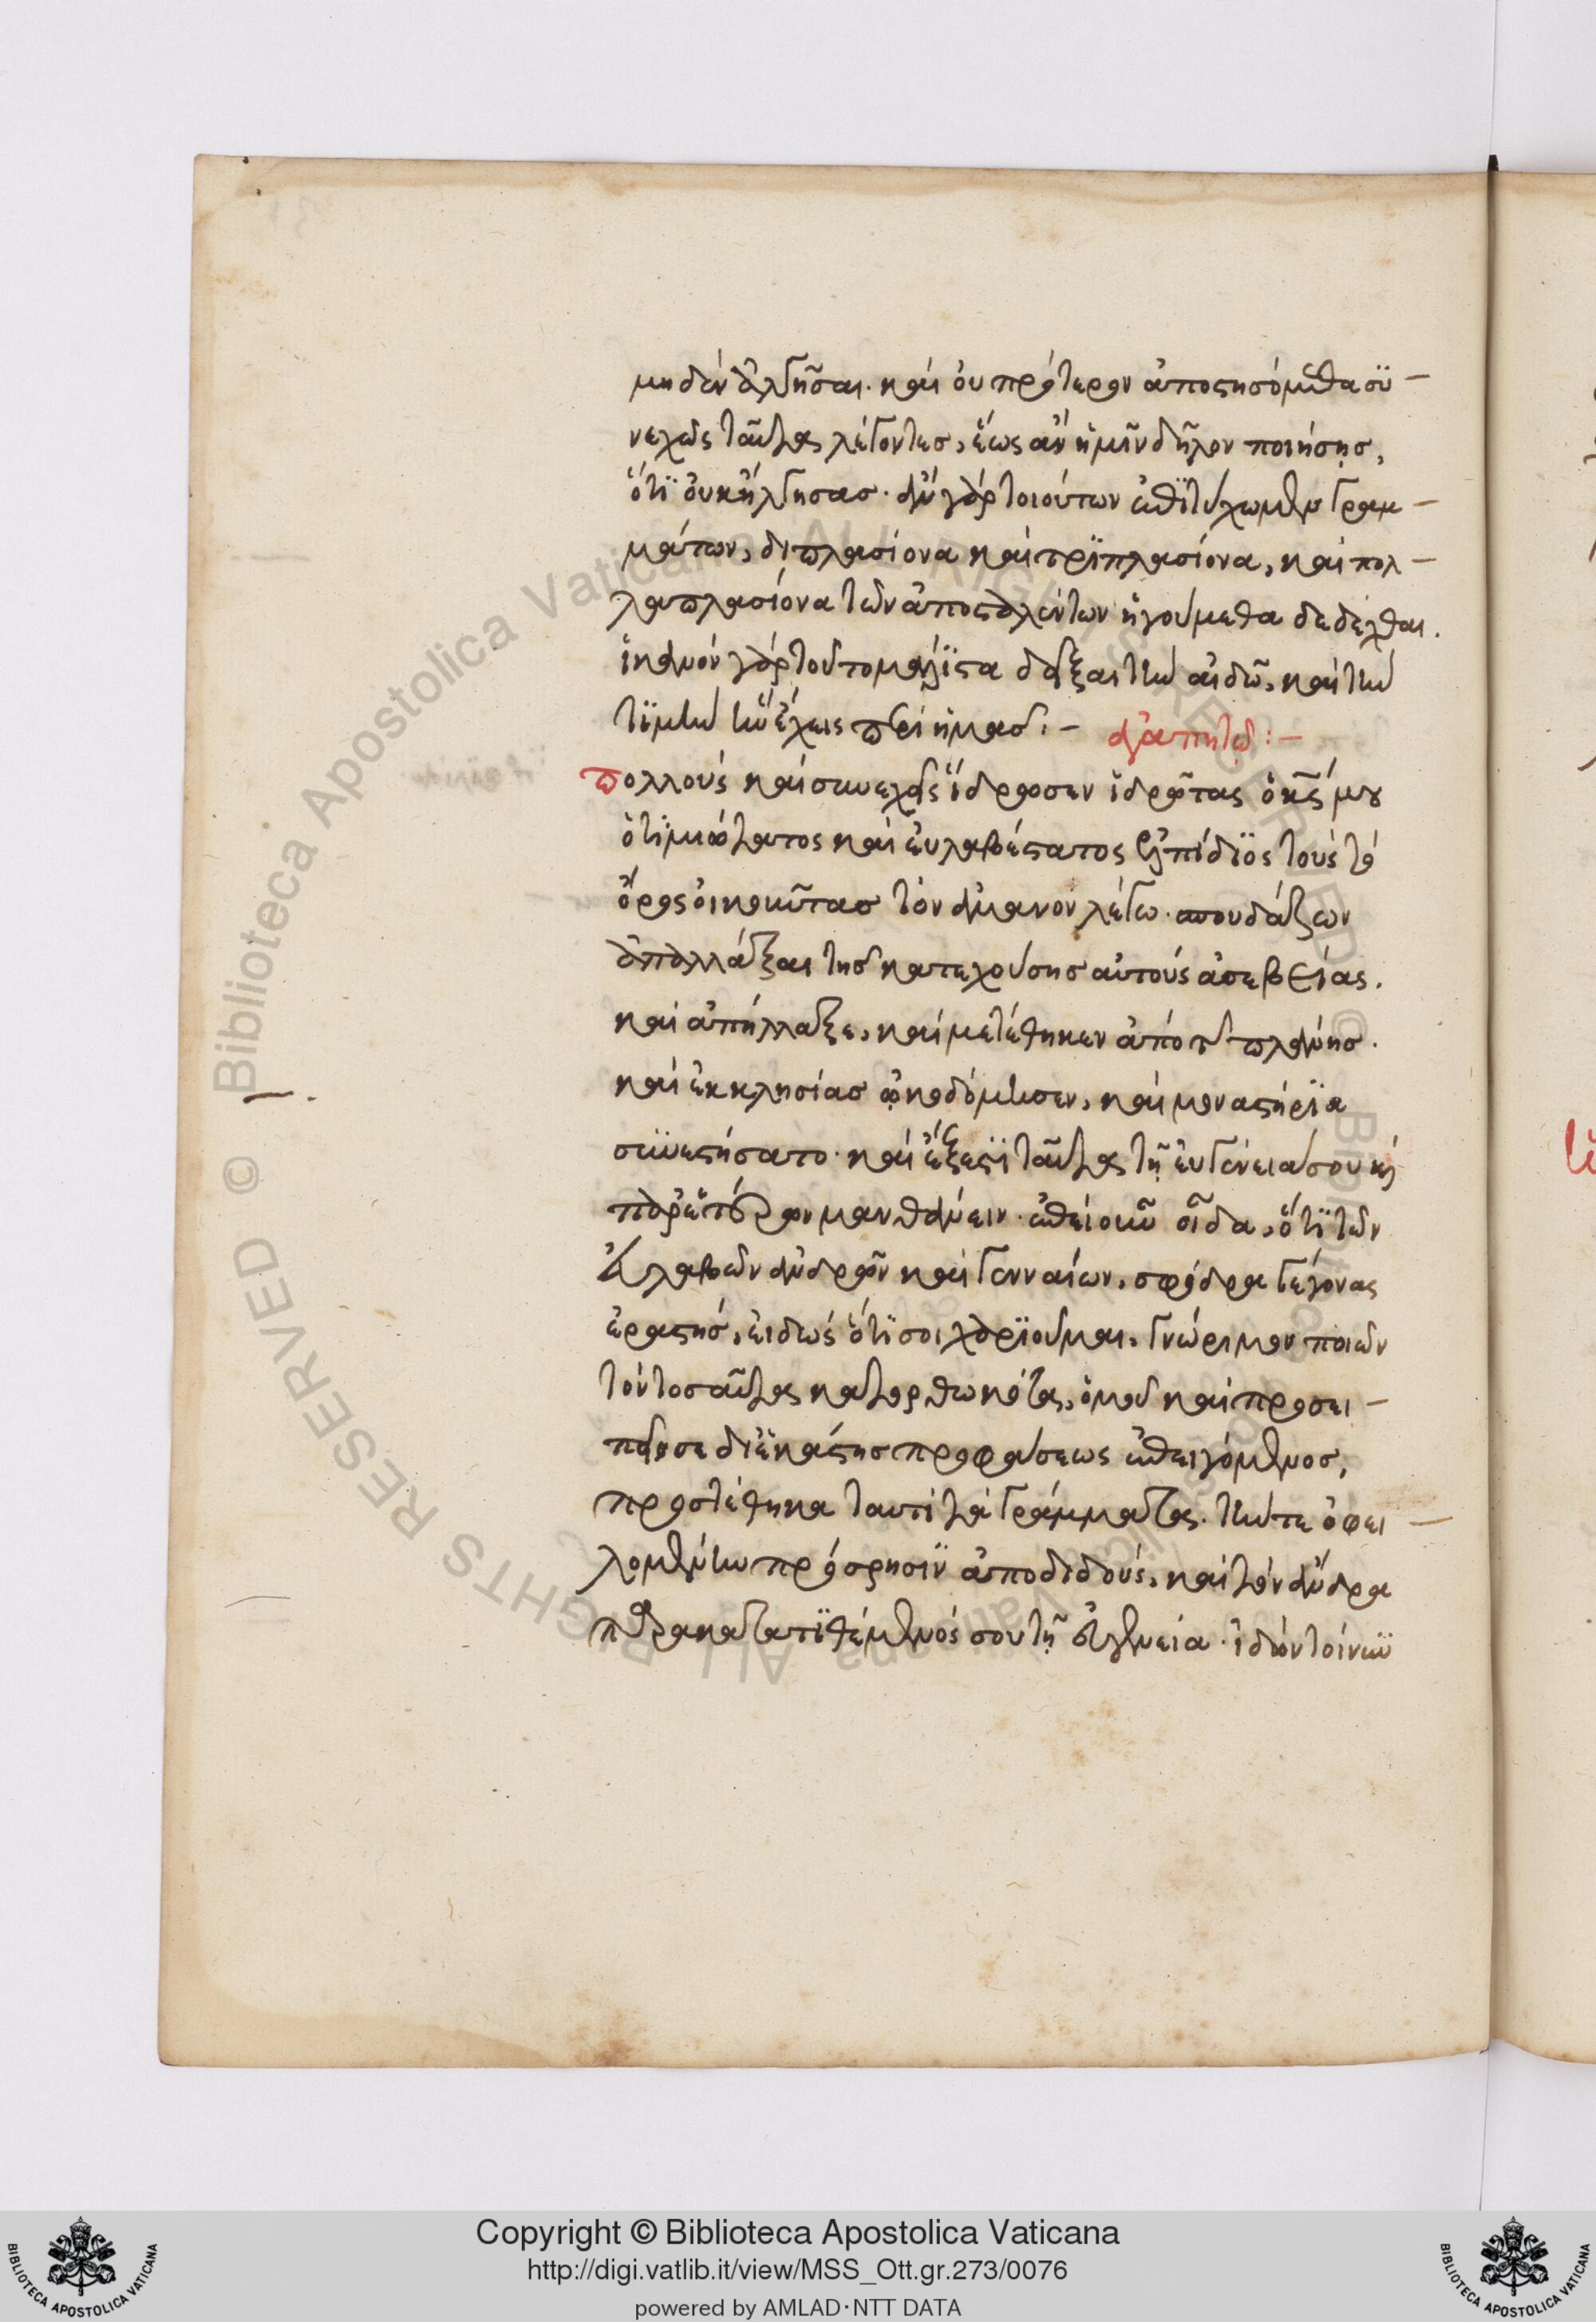 μηδὲν ἀλγῆσαι. καὶ οὐ πρότερον ἀποστησόμεθα συ
νεχῶς ταῦτα λέγοντες, ἕως ἂν ἡμῖν δῆλον ποιήσῃς,
ὅτι οὐκ ἤλγησας. ἂν γὰρ τοιούτων ἐπιτύχωμεν γραμ
μάτων, διπλασίονα καὶ τριπλασίονα, καὶ πολ
λαπλασίονα τῶν ἀποσταλέντων ἡγούμεθα δεδέχθαι.
ἱκανὸν γὰρ τοῦτο μάλιστα δεῖξαι τὴν αἰδῶ, καὶ τὴν
τιμὴν ἣν ἔχεις περὶ ἡμᾶς:– ἀγαπητῷ:–
πολλοὺς καὶ συνεχεῖς ἵδρωσεν ἱδρῶτας ὁ κς μου
ὁ τιμιώτατος καὶ εὐλαβέστατος ἐλπίδιος τοὺς τὸ
ὄρος οἰκοῦντας τὸν ἀμανὸν λέγω. σπουδάζων
ἀπαλλάξαι τῆς κατεχούσης αὐτοὺς ἀσεβείας.
καὶ ἀπήλλαξε, καὶ μετέθηκεν ἀπὸ τῆς πλάνης.
καὶ ἐκκλησίας ᾠκοδόμησεν, καὶ μοναστήρια
συνεστήσατο. καὶ ἔξεστι ταῦτα τῇ εὐγενείᾳ σου καὶ
παρ' ἑτέρων μανθάνειν. ἐπεὶ οὖν οἶδα, ὅτι τῶν
εὐλαβῶν ἀνδρῶν καὶ γενναίων, σφόδρα γέγονας
ἐραστής, εἰδὼς ὅτι σοι χαριοῦμαι, γνώριμον ποιῶν
τὸν τοσαῦτα κατορθωκότα, ὁμοῦ καὶ προσει
πεῖν σε δι' ἑκάστης προφάσεως ἐπειγόμενος,
προστέθηκα ταυτὶ τὰ γράμματα. τήν τε ὀφει
λομένην πρόσρησιν ἀποδιδούς, καὶ τὸν ἄνδρα
παρακατατιθέμενός σου τῇ εὐγενείᾳ. ἰδὼν τοίνυν
Copyright © Biblioteca Apostolica Vaticana
http://digi.vatlib.it/view/MSS_Ott.gr.273/0076
powered by AMLAD·NTT DATA